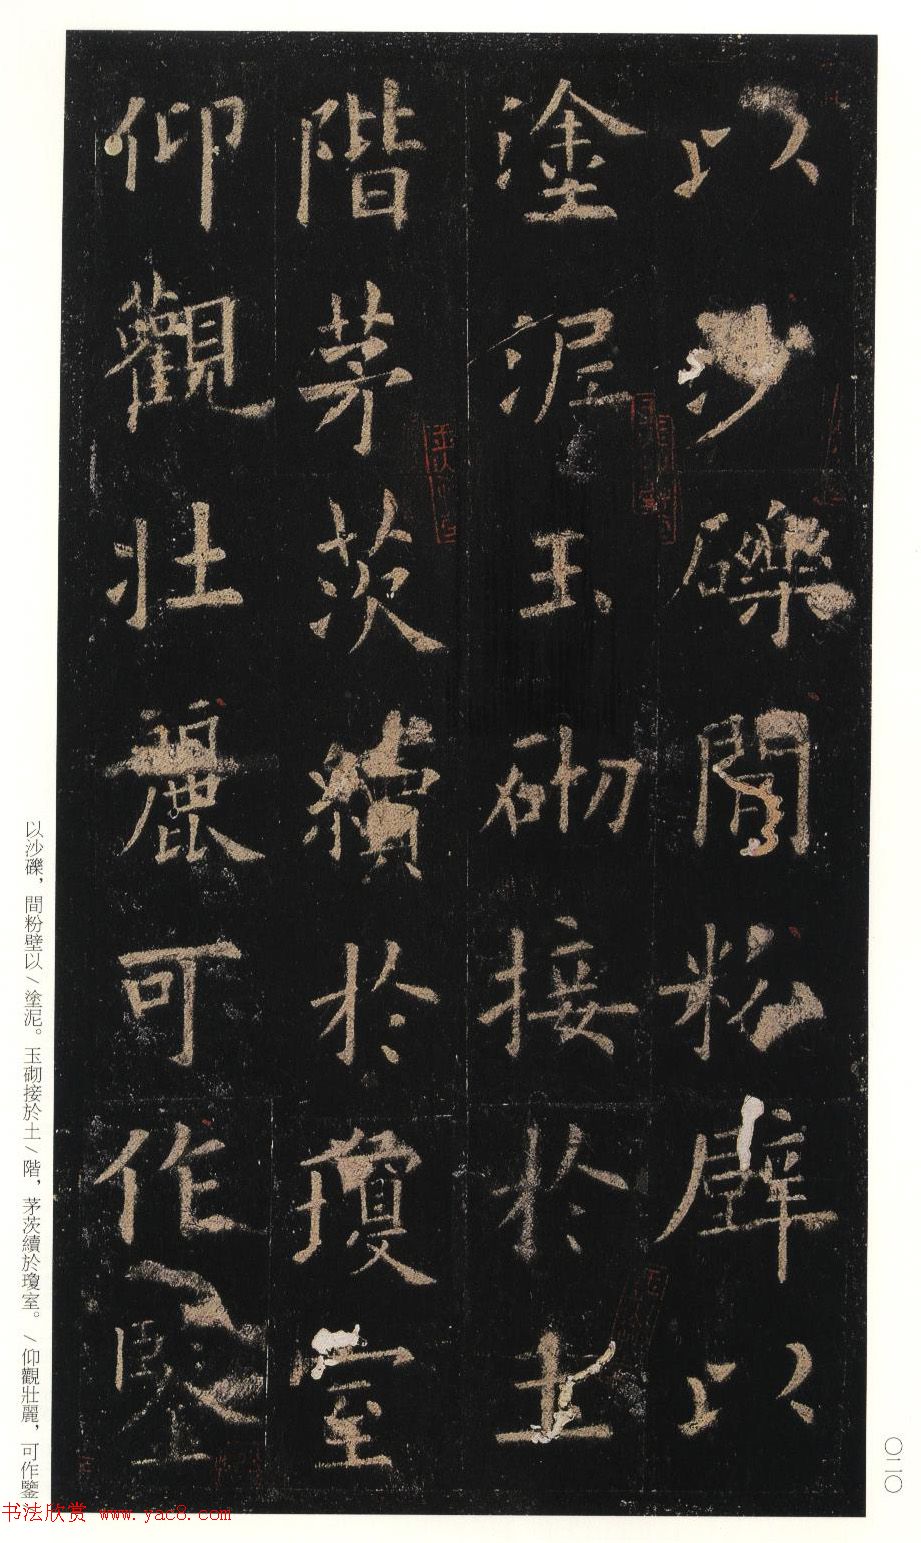 以沙礫間粉壁以
塗泥玉砌接於土
階茅茨續於瓊室
仰觀壯麗可作鑒
以沙礫，間粉壁以／塗泥。玉砌接於土／階，茅茨續於瓊室。／仰觀壯麗，可作鑒
〇二〇
书法欣赏 www.yac8.com